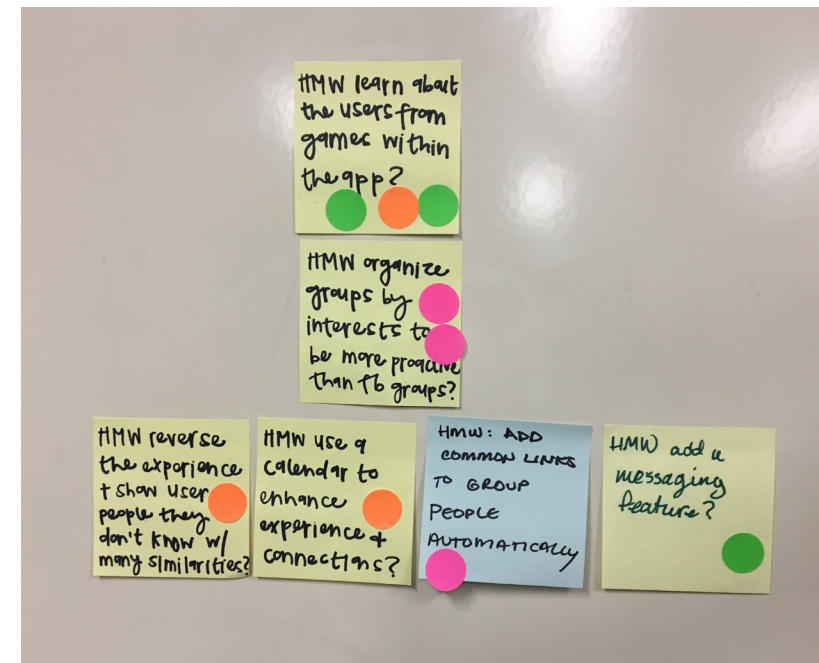 HMW learn about
the users from
games within
the app?
HMW organize
groups by
interests to
be more proactive
than fb groups?
HMW reverse
the experience
+ show user
people they
don't know w/
many similarities?
HMW use a
calendar to
enhance
experience +
connections?
HMW: ADD
COMMON LINKS
TO GROUP
PEOPLE
AUTOMATICALLY
HMW add a
messaging
feature?